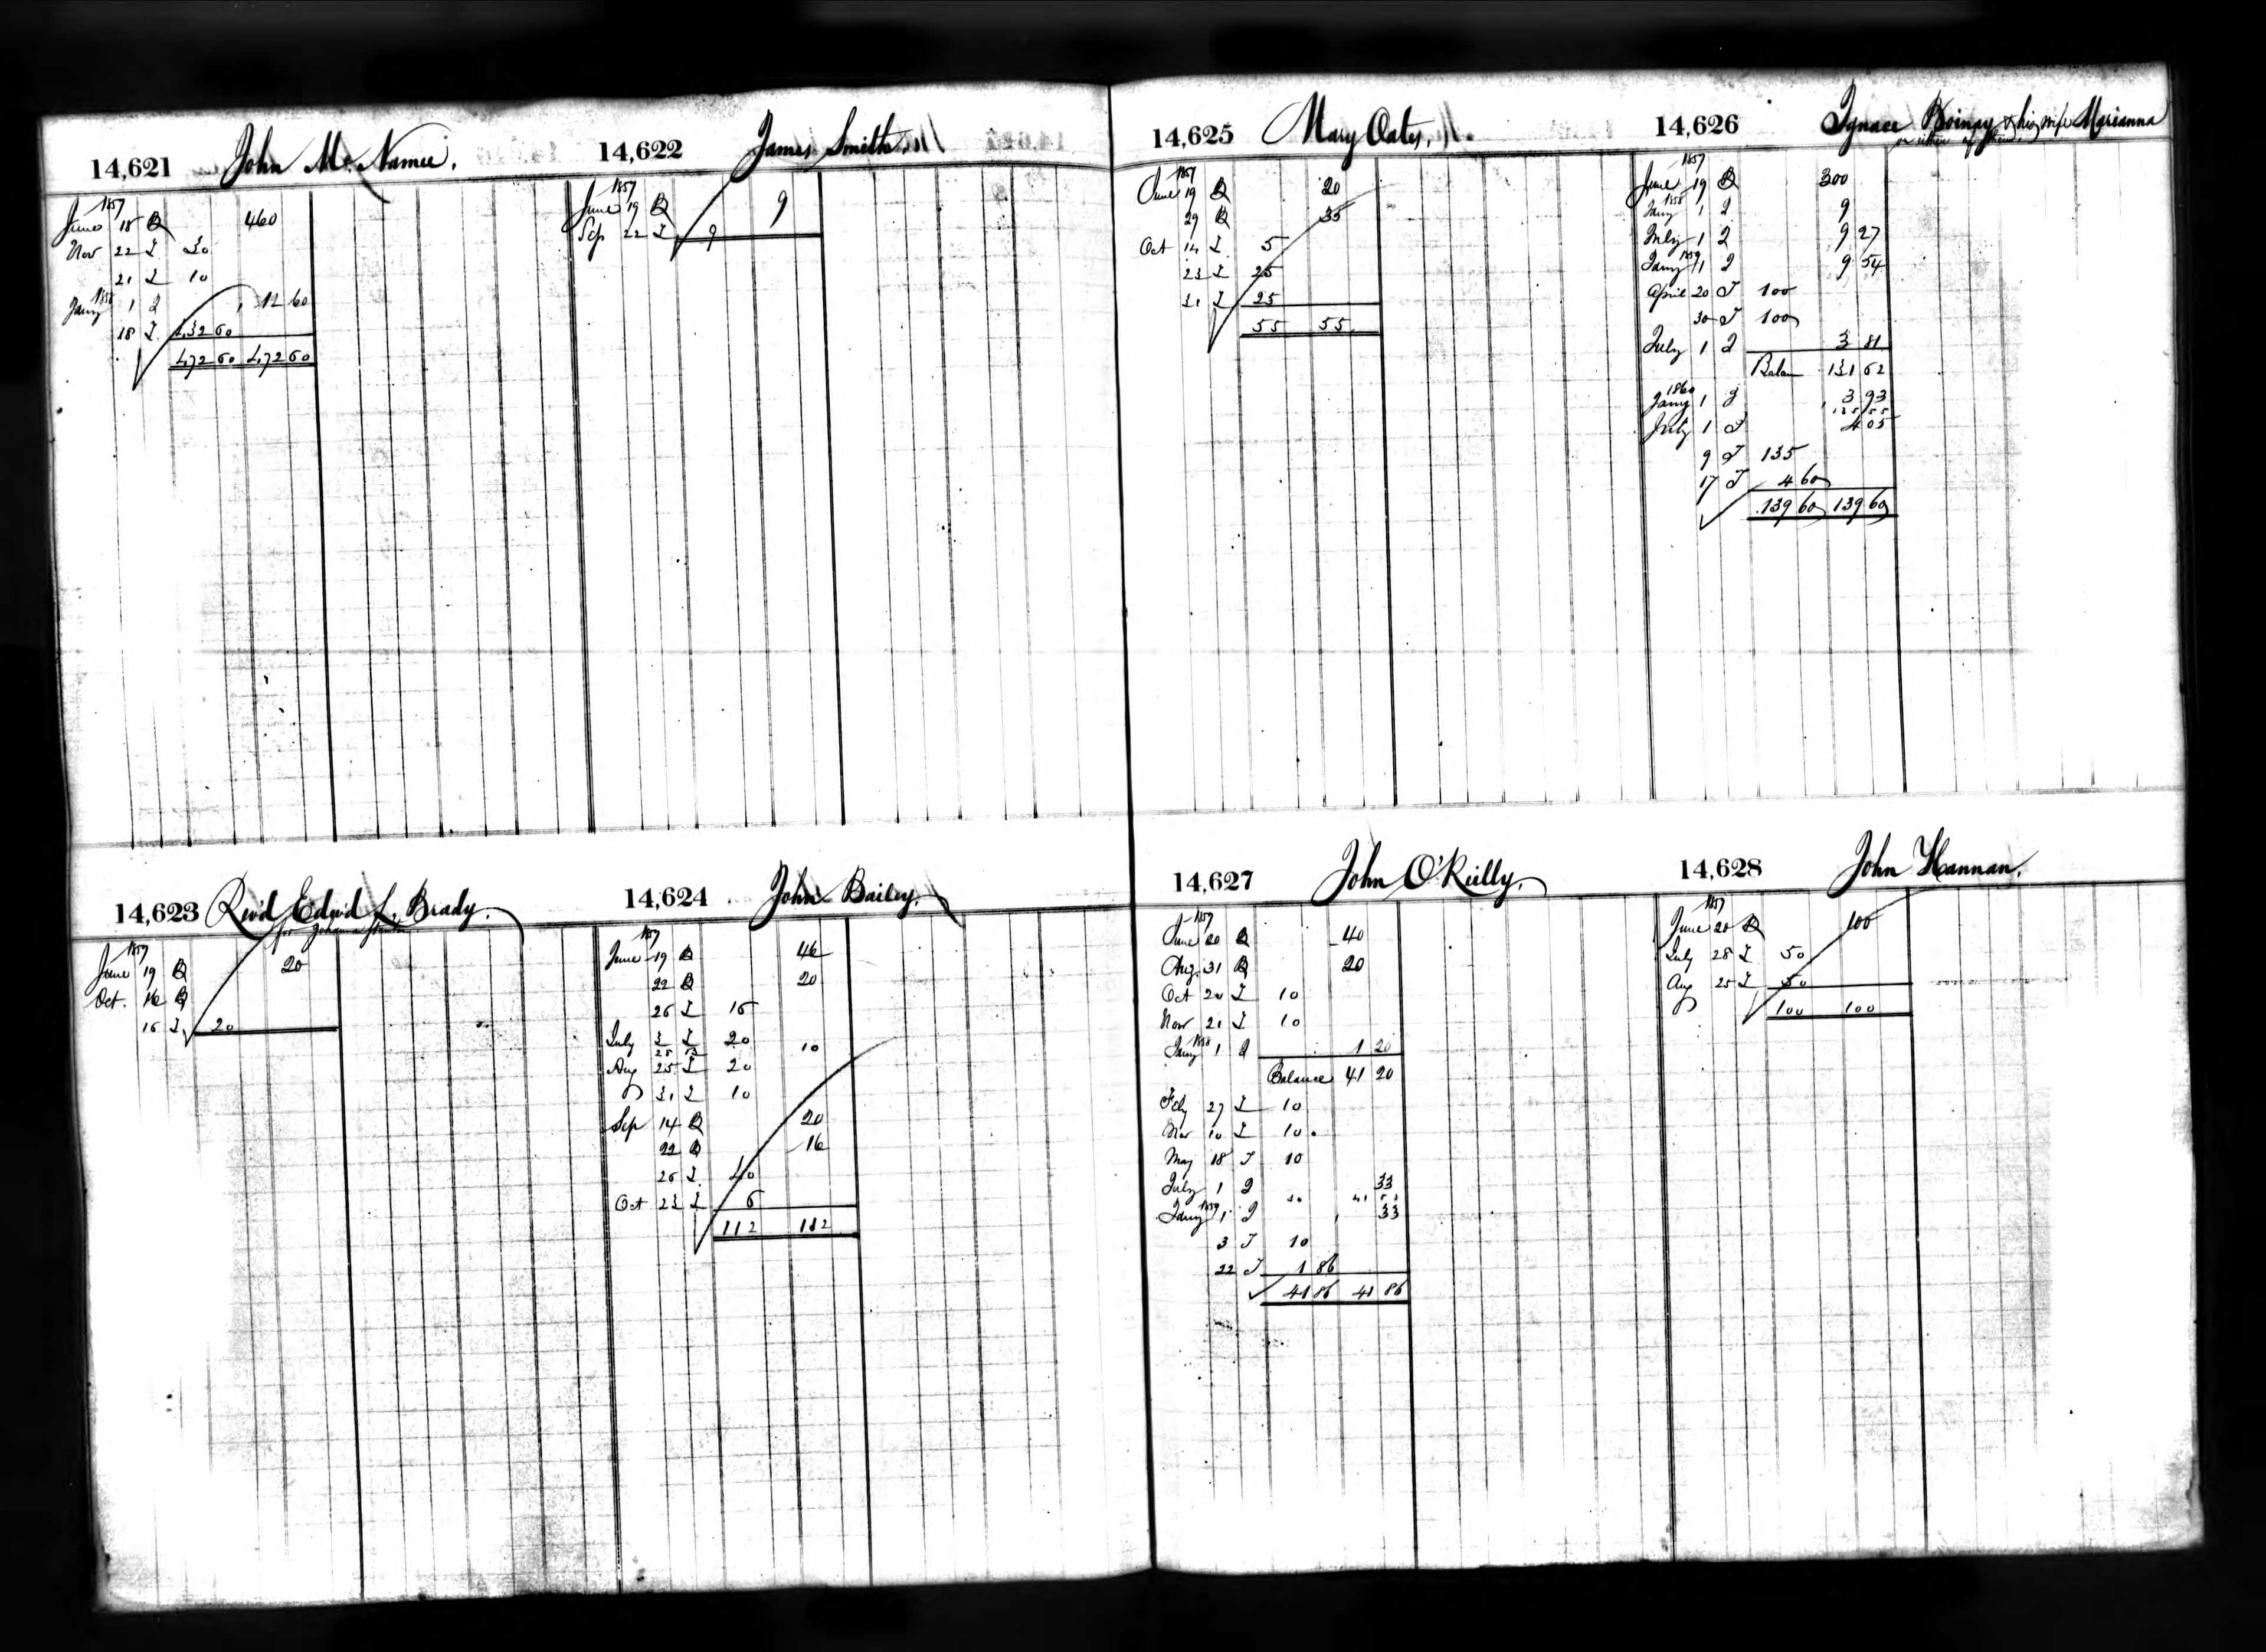 14,621 John Mc. Namee.
1857
June 18 D 460
Nov 22 I 30
21 I 10
1858
Jany 1 I 12 60
18 I 432 60
472 60 472 60
14,622 James Smith.
1857
June 19 D 9
Sep 22 I 9
14,623 Rev'd Edw'd L. Brady.
for
1857
June 19 D 20
Oct. 16 D
16 I 20
14,624 John Bailey.
1857
June 19 D 46
22 D 20
26 I 16
July 3 I 20
25 10
Aug 25 I 20
31 I 10
Sep 14 D 20
22 D 16
26 I 40
Oct 23 I 6
112 112
14,625 Mary Oates.
1857
June 19 D 20
29 D 35
Oct 14 I 5
23 I 25
31 I 25
55 55
14,626 Ignace Boinay & his wife Marianna
or either of them.
1857
June 19 D 300
1858
Jany 1 I 9
July 1 I 9 27
1859
Jany 1 I 9 54
April 20 I 100
30 I 100
July 1 I 3 81
Balan 131 62
1860
Jany 1 I 3 93
135 55
July 1 I 4 05
9 I 135
17 I 4 60
139 60 139 60
14,627 John O'Reilly.
1857
June 20 D 40
Aug. 31 D 20
Oct 20 I 10
Nov 21 I 10
1858
Jany 1 I 1 20
Balance 41 20
Feby 27 I 10
Mar 10 I 10
May 18 I 10
July 1 I 33
30 41 53
1859
Jany 1 I 33
3 I 10
22 I 1 86
41 86 41 86
14,628 John Hannan.
1857
June 20 D 100
July 28 I 50
Aug 25 I 50
100 100